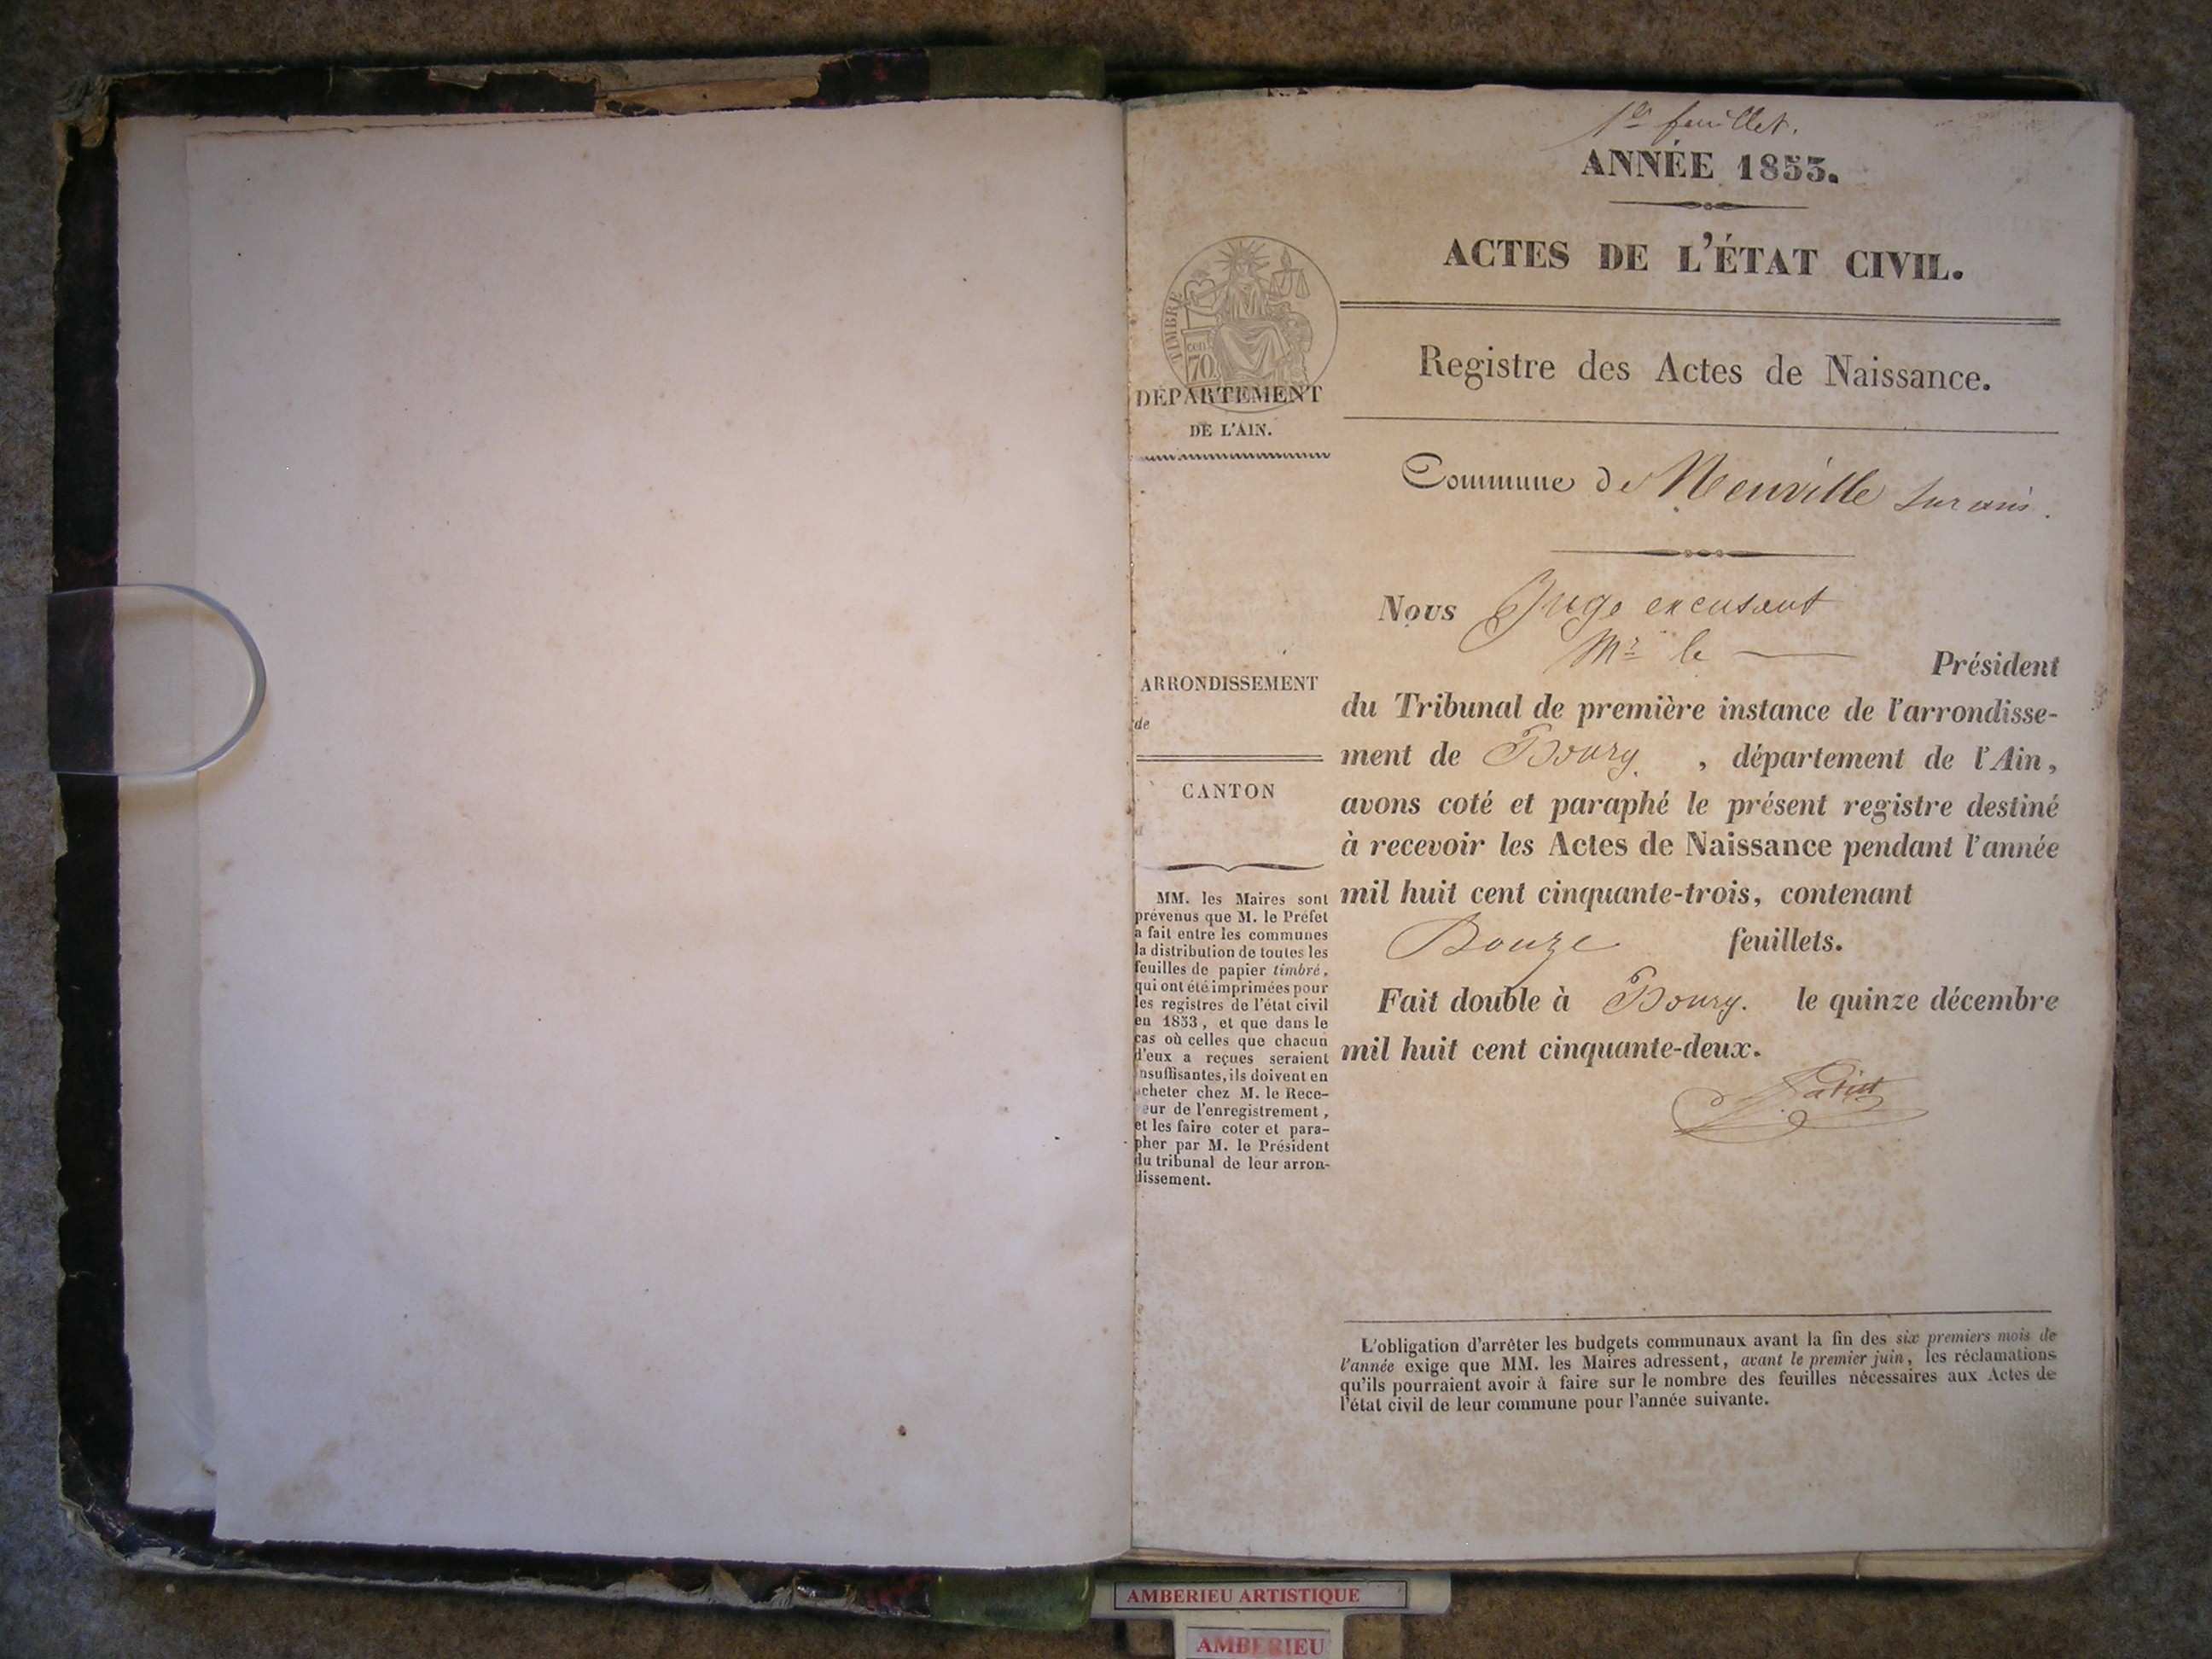 1er feuillet.
ANNÉE 1853.
ACTES DE L'ÉTAT CIVIL.
TIMBRE
cen.
70
DÉPARTEMENT
DE L'AIN.
Registre des Actes de Naissance.
Commune de Neuville sur ain.
Nous Juge excusant
Mr le Président
du Tribunal de première instance de l'arrondisse-
ment de Bourg, département de l'Ain,
avons coté et paraphé le présent registre destiné
à recevoir les Actes de Naissance pendant l'année
mil huit cent cinquante-trois, contenant
feuillets.
Fait double à Bourg. le quinze décembre
mil huit cent cinquante-deux.
ARRONDISSEMENT
de
CANTON
d
MM. les Maires sont
prévenus que M. le Préfet
a fait entre les communes
la distribution de toutes les
feuilles de papier timbré,
qui ont été imprimées pour
les registres de l'état civil
en 1853, et que dans le
cas où celles que chacun
d'eux a reçues seraient
insuffisantes, ils doivent en
acheter chez M. le Rece-
veur de l'enregistrement,
et les faire coter et para-
pher par M. le Président
du tribunal de leur arron-
dissement.
L'obligation d'arrêter les budgets communaux avant la fin des six premiers mois de
l'année exige que MM. les Maires adressent, avant le premier juin, les réclamations
qu'ils pourraient avoir à faire sur le nombre des feuilles nécessaires aux Actes de
l'état civil de leur commune pour l'année suivante.
AMBERIEU ARTISTIQUE
AMBERIEU